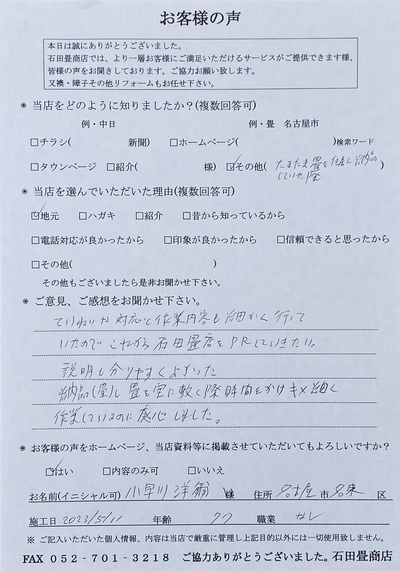 お客様の声
本日は誠にありがとうございました。
石田畳商店では、より一層お客様にご満足いただけるサービスがご提供できます様、
皆様の声をお聞きしております。ご協力お願い致します。
又襖・障子その他リフォームもお任せ下さい。
※ 当店をどのように知りましたか?(複数回答可)
例・中日 例・畳 名古屋市
□チラシ( 新聞) □ホームページ( )検索ワード
□タウンページ □紹介( 様) ☑その他( たまたま畳を
していた際 )
※ 当店を選んでいただいた理由(複数回答可)
☑地元 □ハガキ □紹介 □昔から知っているから
□電話対応が良かったから □印象が良かったから □信頼できると思ったから
□その他( )
その他もございましたら是非お聞かせ下さい。
※ ご意見、ご感想をお聞かせ下さい。
ていねいな対応と作業内容も細かく行って
いたので これから 石田畳店を PRしていきたい。
説明も分りやすくよかった
納品し 畳を室に敷く際 時間をかけ キメ細く
作業しているのに感心しました。
※ お客様の声をホームページ、当店資料等に掲載させていただいてもよろしいですか?
☑はい □内容のみ可 □いいえ
お名前(イニシャル可) 小早川 洋 様 住所 名古屋 市 名東 区
施工日 2023/5/11 年齢 77 職業 なし
※ ご記入いただいた個人情報、内容は当店で厳重に管理し上記目的以外には一切使用致しません。
FAX 052-701-3218 ご協力ありがとうございました。石田畳商店